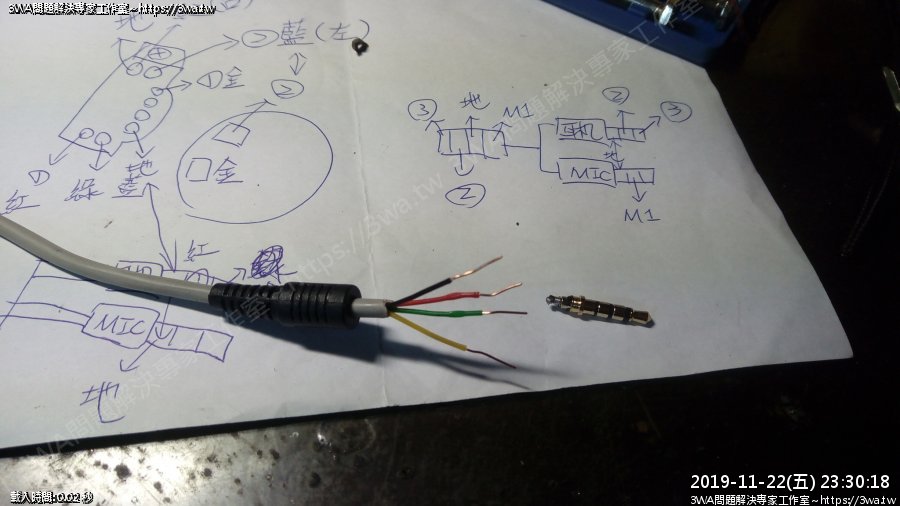 3WA問題解決專家工作室~https://3wa.tw
地
②藍(左)
①金
②
金
紅
綠
藍
地
紅
MIC
地
③
地
M1
②
耳机
②
③
地
MIC
M1
3WA問題解決專家工作室 https://3wa.tw
載入時間:0.02 秒
2019-11-22(五) 23:30:18
3WA問題解決專家工作室~https://3wa.tw